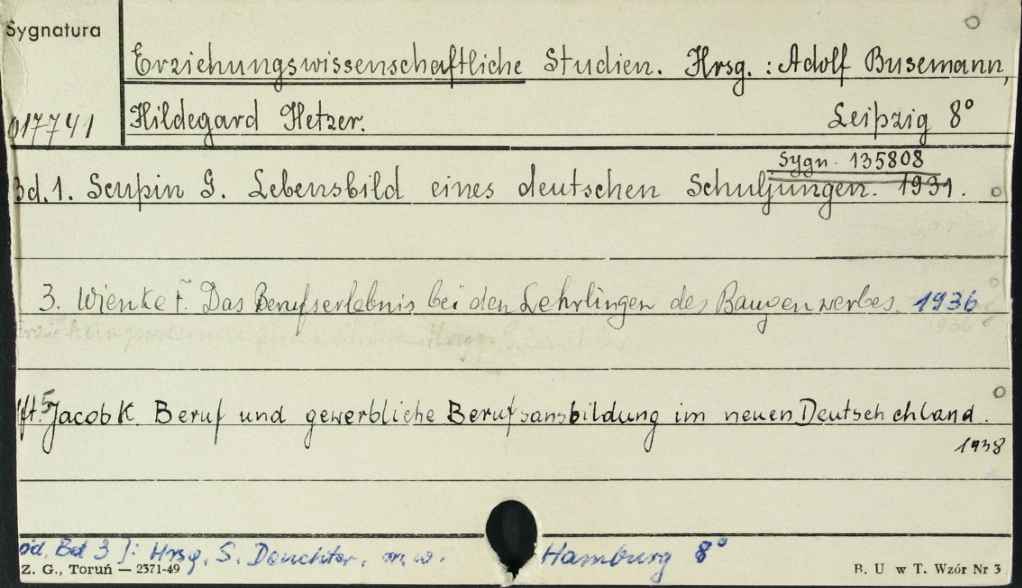 Sygnatura
Erziehungswissenschaftliche Studien. Hrsg. : Adolf Busemann,
017741 Hildegard Hetzer. Leipzig 8°
Sygn. 135808
Bd. 1. Scupin G. Lebensbild eines deutschen Schuljungen. 1931.
3. Wienke F. Das Berufserlebnis bei den Lehrlingen des Baugenwerbes. 1936
Hft. 5 Jacob K. Beruf und gewerbliche Berufsausbildung im neuen Deutsch chland.
1938
Bd 3 ]: Hrsg. S. Hamburg 8°
Z. G., Toruń — 2371-49 B. U w T. Wzór Nr 3